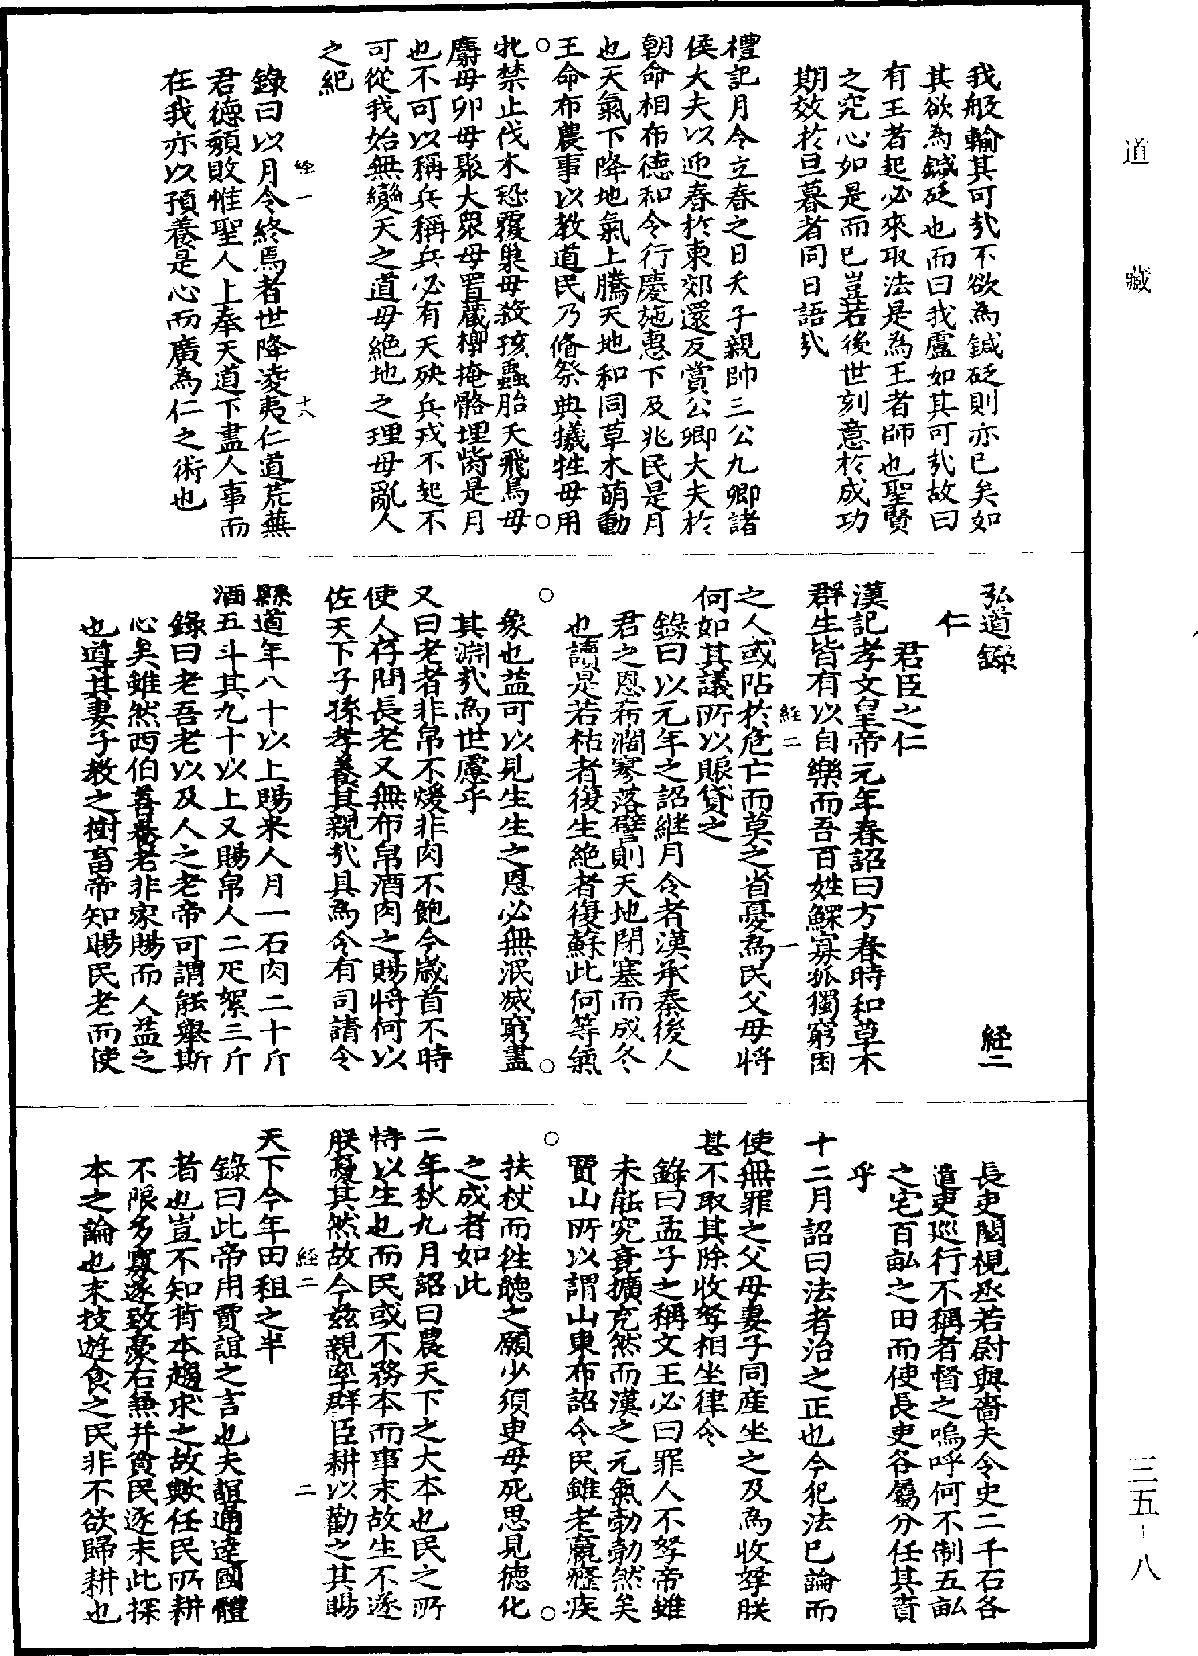 道藏
三五-八
我般輸其可哉不欲為鍼砭則亦已矣如
其欲為鍼砭也而曰我盧如其可哉故曰
有王者起必來取法是為王者師也聖賢
之究心如是而已豈若後世刻意於成功
期效於旦暮者同日語哉
禮記月令立春之日天子親帥三公九卿諸
侯大夫以迎春於東郊還反賞公卿大夫於
朝命相布德和令行慶施惠下及兆民是月
也天氣下降地氣上騰天地和同草木萌動
王命布農事以教道民乃脩祭典犧牲毋用
牝禁止伐木毋覆巢毋殺孩蟲胎夭飛鳥毋
麛毋卵毋聚大眾毋置城郭掩骼埋胔是月
也不可以稱兵稱兵必有天殃兵戎不起不
可從我始無變天之道毋絕地之理毋亂人
之紀
經一 十八
錄曰以月令終焉者世降凌夷仁道荒蕪
君德頹敗惟聖人上奉天道下盡人事而
在我亦以預養是心而廣為仁之術也
弘道錄 經二
仁
君臣之仁
漢記孝文皇帝元年春詔曰方春時和草木
群生皆有以自樂而吾百姓鰥寡孤獨窮困
經二 一
之人或阽於危亡而莫之省憂為民父母將
何如其議所以賑貸之
錄曰以元年之詔繼月令者漢承秦後人
君之恩希闊寥落譬則天地閉塞而成冬
也讀是若枯者復生絕者復蘇此何等氣
象也益可以見生生之恩必無泯滅窮盡
其淵哉為世慮乎
又曰老者非帛不煖非肉不飽今歲首不時
使人存問長老又無布帛酒肉之賜將何以
佐天下子孫孝養其親哉具為令有司請令
縣道年八十以上賜米人月一石肉二十斤
酒五斗其九十以上又賜帛人二疋絮三斤
錄曰老吾老以及人之老帝可謂能舉斯
心矣雖然西伯善養老非家賜而人益之
也導其妻子教之樹畜帝知賜民老而使
長吏閱視丞若尉與嗇夫令史二千石各
遣吏巡行不稱者督之嗚呼何不制五畝
之宅百畝之田而使長吏各屬分任其責
乎
十二月詔曰法者治之正也今犯法已論而
使無罪之父母妻子同產坐之及為收孥朕
甚不取其除收孥相坐律令
錄曰孟子之稱文王必曰罪人不孥帝雖
未能究竟擴充然而漢之元氣勃勃然矣
賈山所以謂山東布詔令民雖老羸癃疾
扶杖而往聽之願少須臾毋死思見德化
之成者如此
二年秋九月詔曰農天下之大本也民之所
恃以生也而民或不務本而事末故生不遂
朕憂其然故今茲親率群臣耕以勸之其賜
經二 二
天下今年田租之半
錄曰此帝用賈誼之言也夫誼通達國體
者也豈不知背本趨末之故歟任民所耕
不限多寡遂致豪右兼并貧民逐末此探
本之論也末技遊食之民非不欲歸耕也